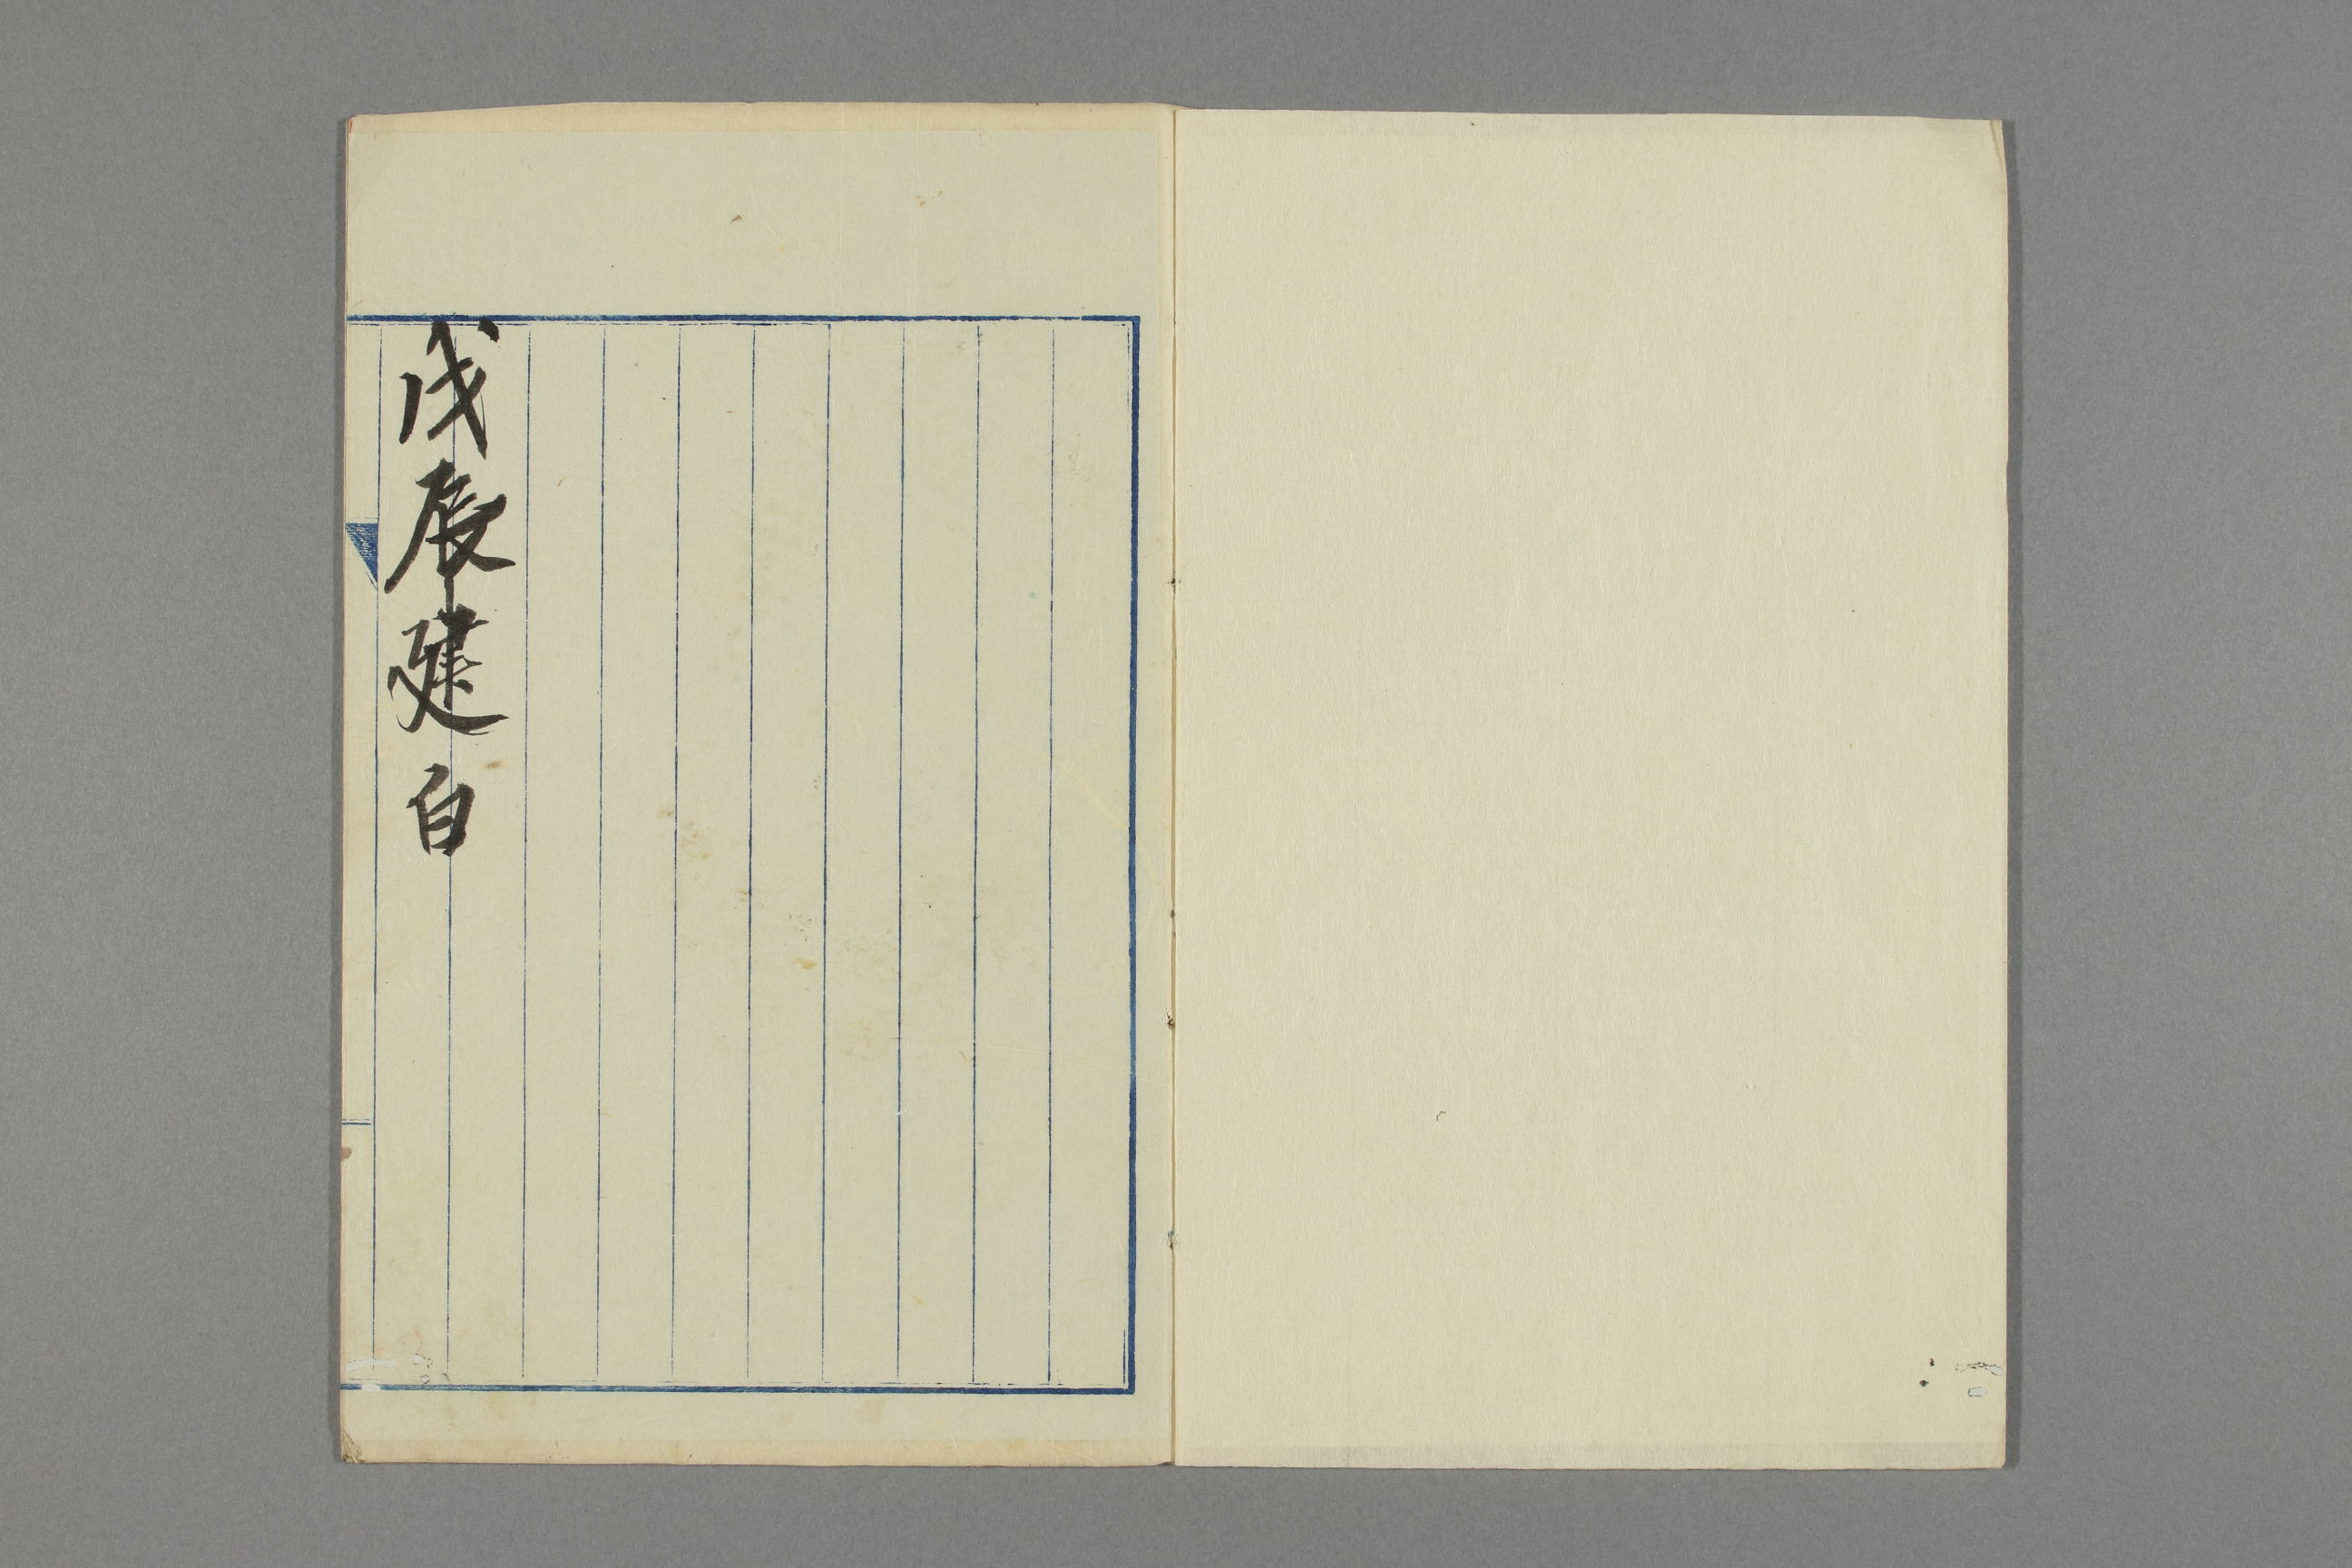 戊辰建白